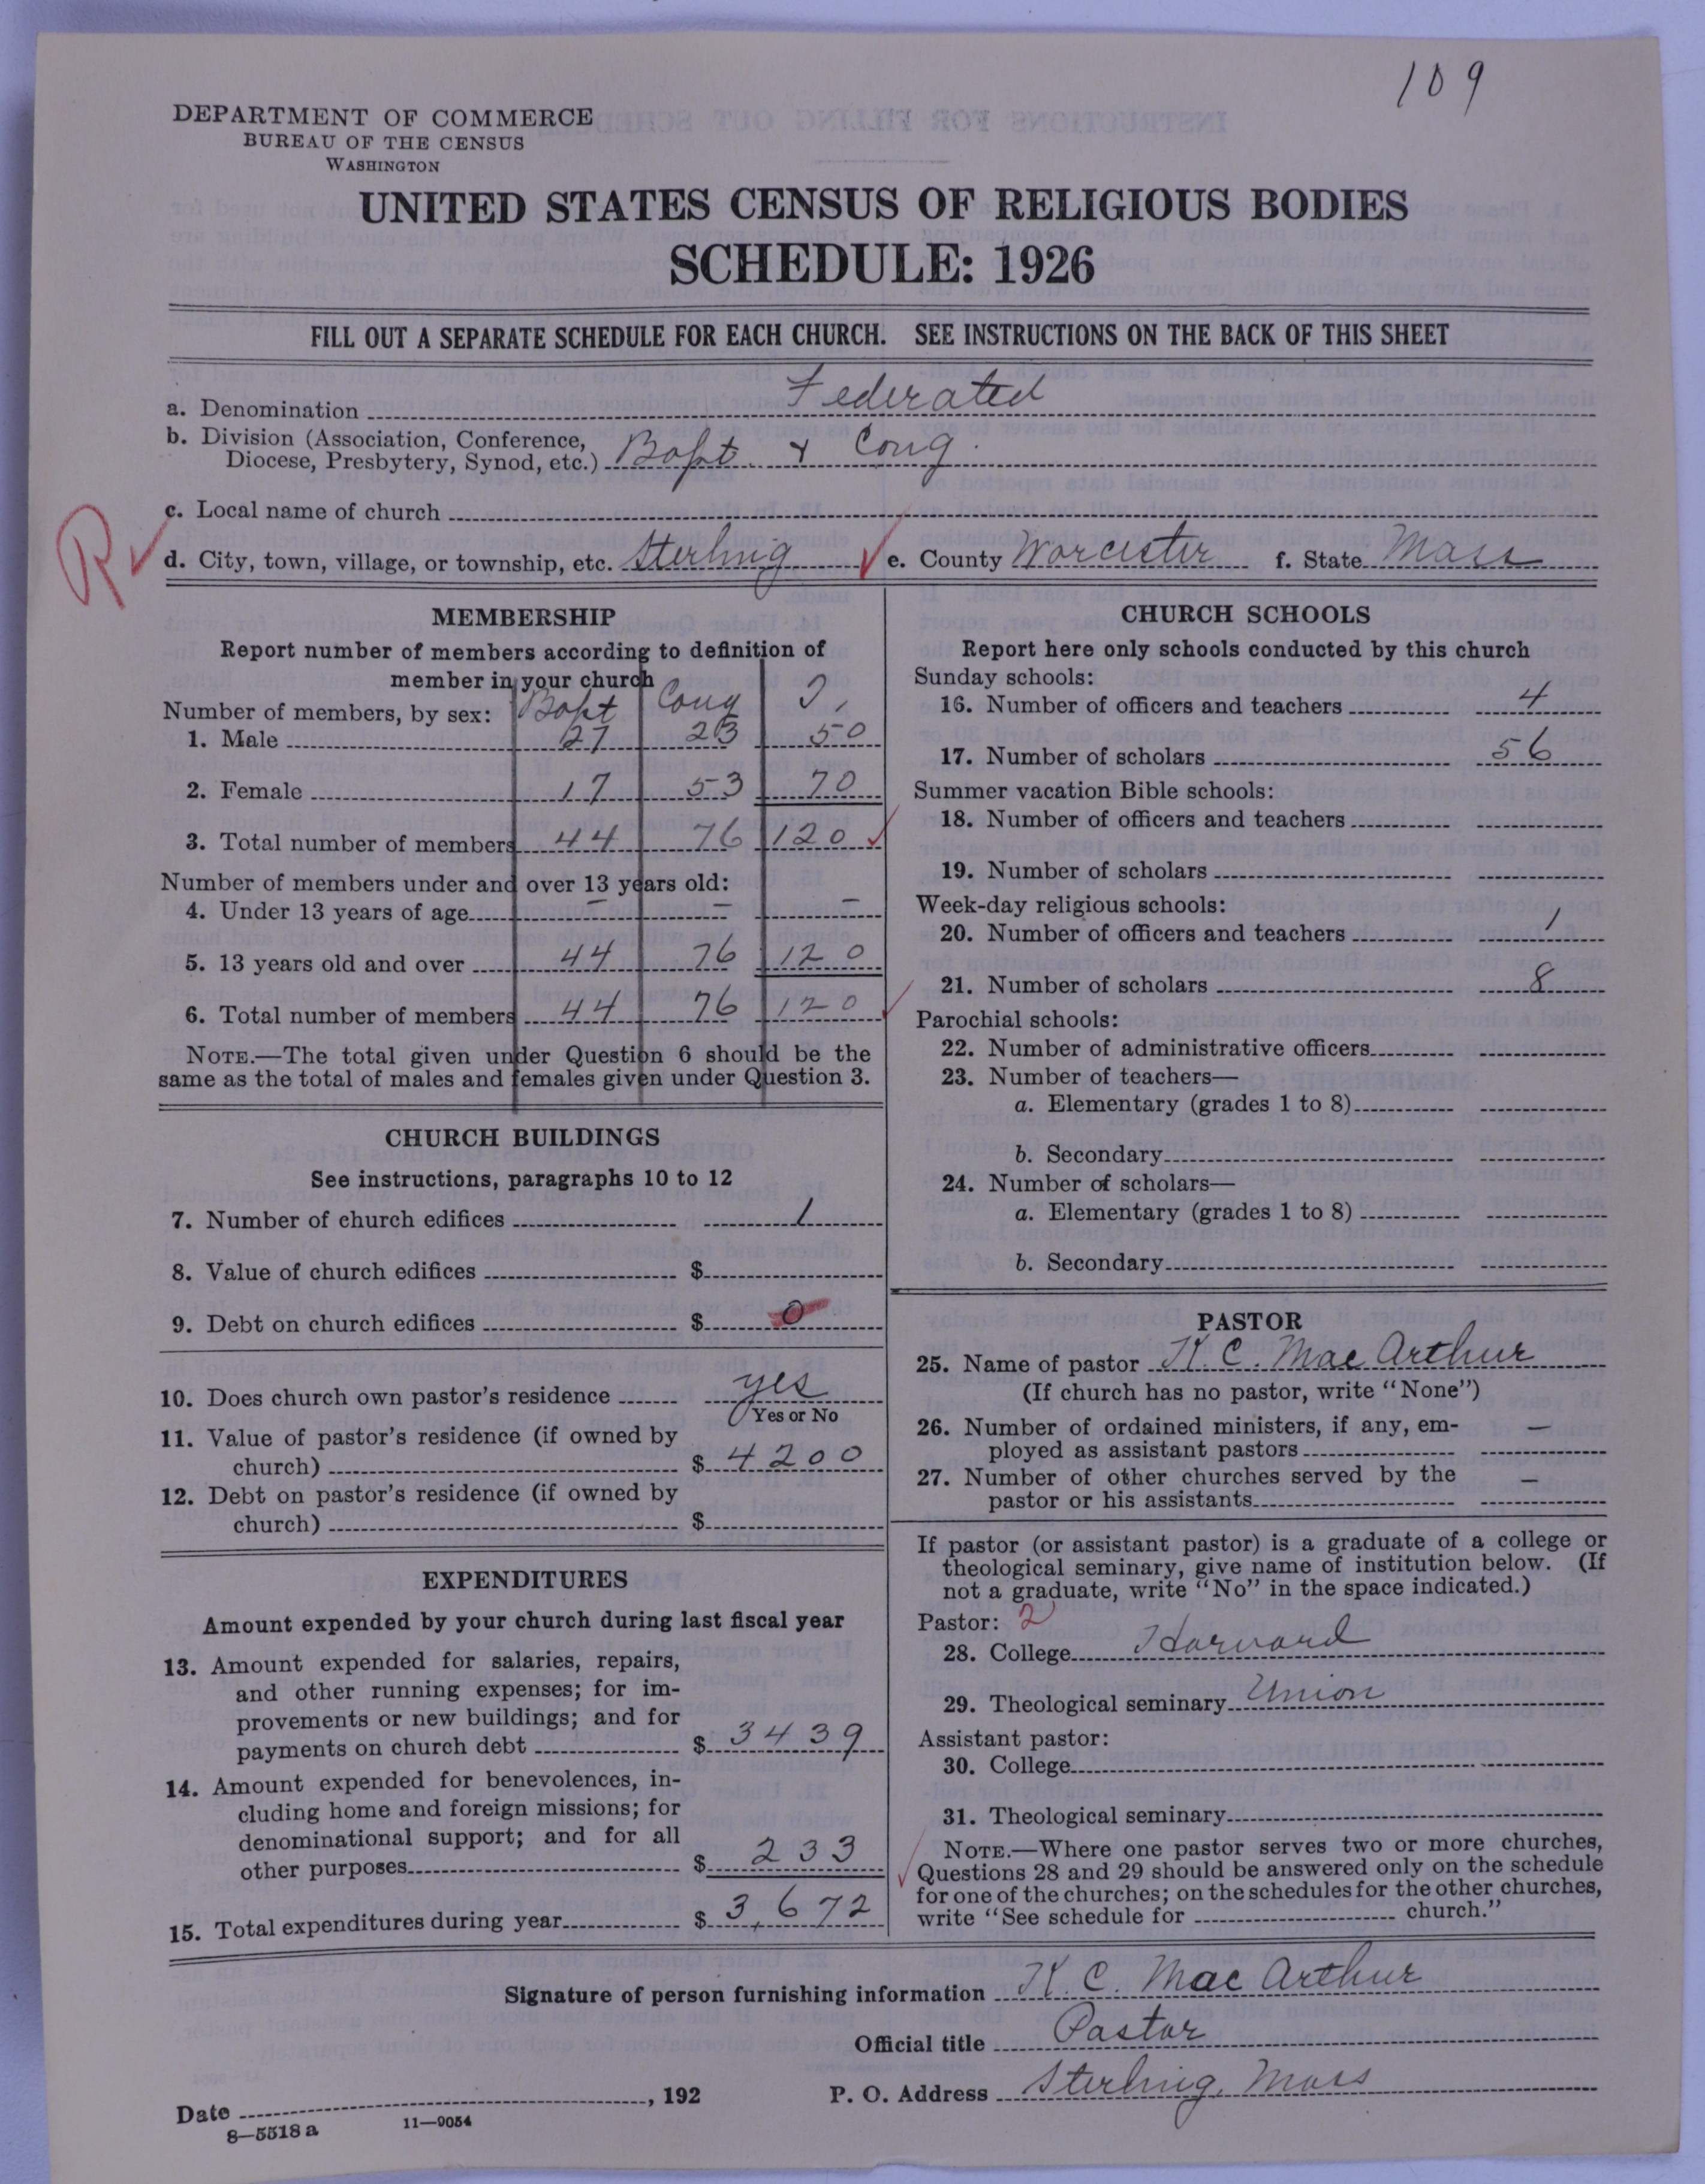 109
DEPARTMENT OF COMMERCE
BUREAU OF THE CENSUS
WASHINGTON
UNITED STATES CENSUS OF RELIGIOUS BODIES
SCHEDULE: 1926
FILL OUT A SEPARATE SCHEDULE FOR EACH CHURCH. SEE INSTRUCTIONS ON THE BACK OF THIS SHEET
a. Denomination Federated
b. Division (Association, Conference,
Diocese, Presbytery, Synod, etc.) Bapt. & Cong.
c. Local name of church
R
d. City, town, village, or township, etc. Sterling e. County Worcester f. State Mass
MEMBERSHIP
Report number of members according to definition of
member in your church
Number of members, by sex: Bapt Cong T.
1. Male 27 23 50
2. Female 17 53 70
3. Total number of members 44 76 120
Number of members under and over 13 years old:
4. Under 13 years of age – – –
5. 13 years old and over 44 76 120
6. Total number of members 44 76 120
NOTE.—The total given under Question 6 should be the
same as the total of males and females given under Question 3.
CHURCH BUILDINGS
See instructions, paragraphs 10 to 12
7. Number of church edifices 1
8. Value of church edifices $
9. Debt on church edifices $ 0
10. Does church own pastor's residence yes
Yes or No
11. Value of pastor's residence (if owned by
church) $ 4200
12. Debt on pastor's residence (if owned by
church) $
EXPENDITURES
Amount expended by your church during last fiscal year
13. Amount expended for salaries, repairs,
and other running expenses; for im-
provements or new buildings; and for
payments on church debt $ 3439
14. Amount expended for benevolences, in-
cluding home and foreign missions; for
denominational support; and for all
other purposes $ 233
15. Total expenditures during year $ 3,672
CHURCH SCHOOLS
Report here only schools conducted by this church
Sunday schools:
16. Number of officers and teachers 4
17. Number of scholars 56
Summer vacation Bible schools:
18. Number of officers and teachers
19. Number of scholars
Week-day religious schools:
20. Number of officers and teachers 1
21. Number of scholars 8
Parochial schools:
22. Number of administrative officers
23. Number of teachers—
a. Elementary (grades 1 to 8)
b. Secondary
24. Number of scholars—
a. Elementary (grades 1 to 8)
b. Secondary
PASTOR
25. Name of pastor K. C. Mac Arthur
(If church has no pastor, write "None")
26. Number of ordained ministers, if any, em-
ployed as assistant pastors –
27. Number of other churches served by the
pastor or his assistants –
If pastor (or assistant pastor) is a graduate of a college or
theological seminary, give name of institution below. (If
not a graduate, write "No" in the space indicated.)
Pastor: 2
28. College Harvard
29. Theological seminary Union
Assistant pastor:
30. College
31. Theological seminary
NOTE.—Where one pastor serves two or more churches,
Questions 28 and 29 should be answered only on the schedule
for one of the churches; on the schedules for the other churches,
write "See schedule for church."
Signature of person furnishing information K. C. Mac Arthur
Official title Pastor
Date , 192 P. O. Address Sterling, Mass
8—5518 a 11—9054